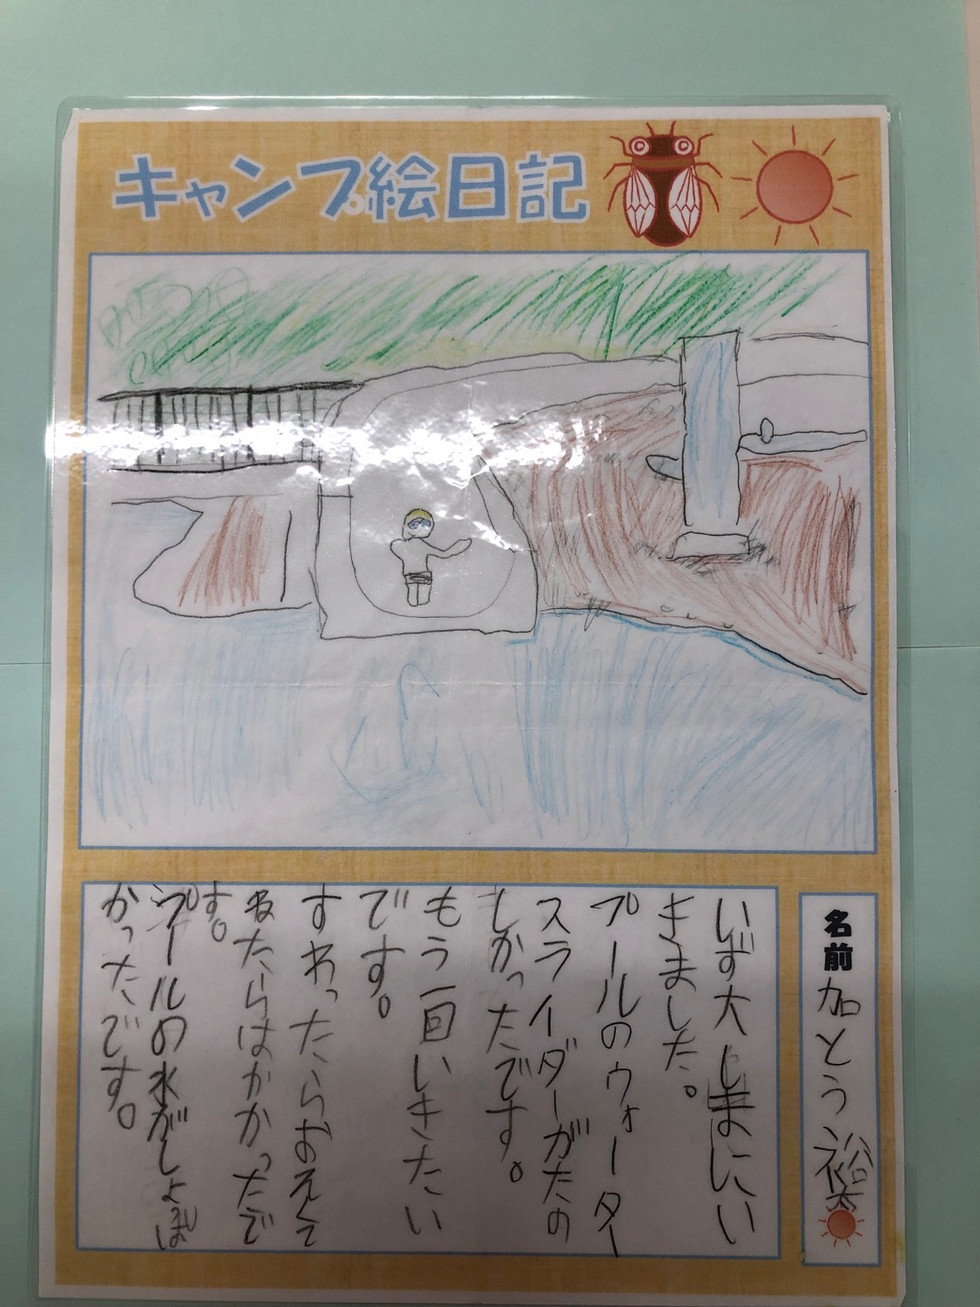 キャンプ絵日記
名前 加とう 裕太
いず大しまにい
きました。
プールのウォーター
スライダーがたの
しかったです。
もう一回いきたい
です。
すわったらおそくて
ねたらはやかったで
す。
プールの水がしょっぱ
かったです。